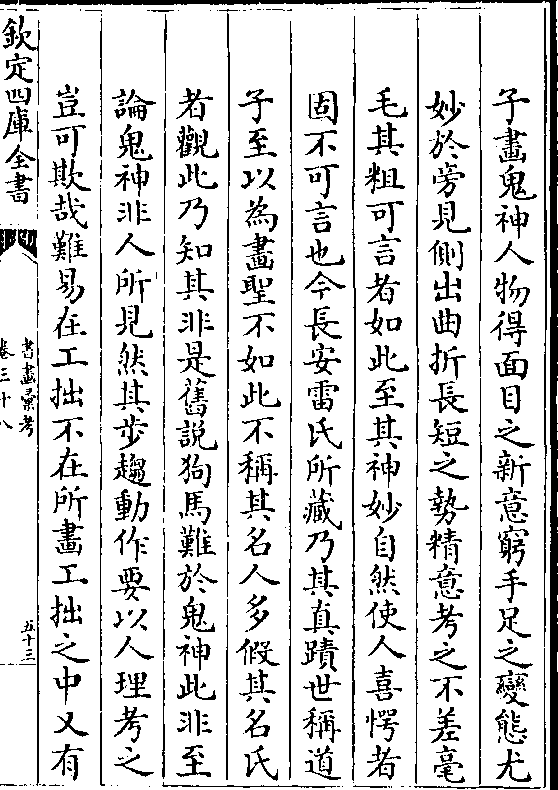 子畫鬼神人物得面目之新意窮手足之變態尤
妙於旁見側出曲折長短之勢精意考之不差毫
毛其粗可言者如此至其神妙自然使人喜愕者
固不可言也今長安雷氏所藏乃其真蹟世稱道
子至以為畫聖不如此不稱其名人多假其名氏
者觀此乃知其非是舊說狗馬難於鬼神此非至
論鬼神非人所見然其步趨動作要以人理考之
豈可欺哉難易在工拙不在所畫工拙之中又有
欽定四庫全書
書畫彚考
卷三十八
五十三